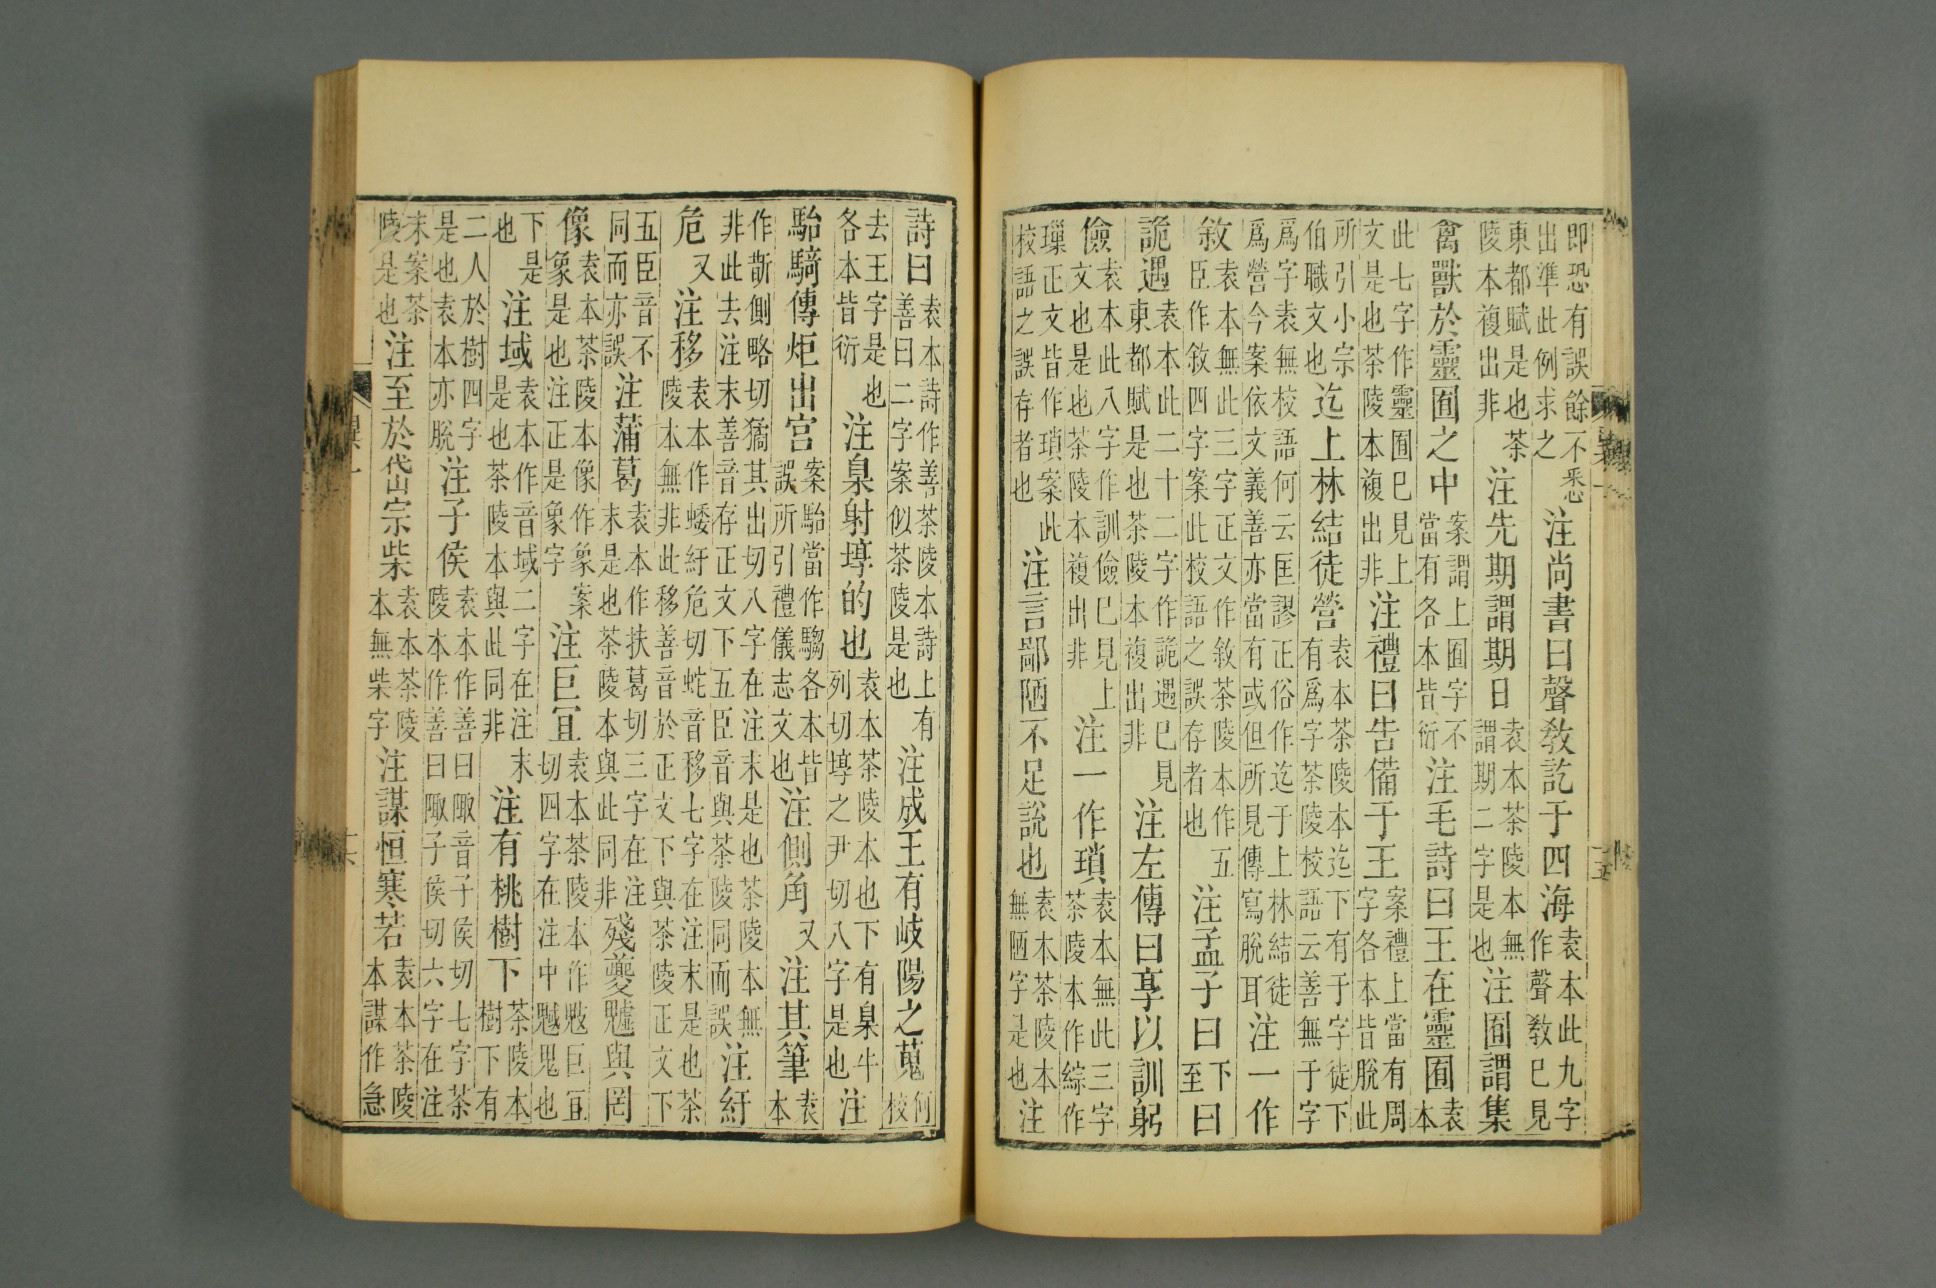 即恐有誤餘不悉出準此例求之注尚書曰聲敎訖于四海袁本此九字作聲敎巳見
東都賦是也茶陵本複出非注先期謂期日袁本茶陵本無謂期二字是也注囿謂集
禽獸於靈囿之中案謂上囿字不當有各本皆衍注毛詩曰王在靈囿袁本
此七字作靈囿巳見上文是也茶陵本複出非注禮曰告備于王案禮上當有周字各本皆脫此
所引小宗伯職文也迄上林結徒營袁本茶陵本迄下有于字徒下有爲字茶陵校語云善無于字
爲字袁無校語何云匡謬正俗作迄于上林結徒爲營今案依文義善亦當有或但所見傳寫脫耳注一作
敘袁本無此三字正文作敘茶陵本作五臣作敘四字案此校語之誤存者也注孟子曰下至曰
詭遇袁本此二十二字作詭遇巳見東都賦是也茶陵本複出非注左傳曰享以訓躬
儉袁本此八字作訓儉巳見上文也是也茶陵本複出非注一作瑣袁本無此三字茶陵本作綜作
璅正文皆作瑣案此校語之誤存者也注言鄙陋不足說也袁本茶陵本無陋字是也注
詩曰袁本詩作善茶陵本詩上有善曰二字案似茶陵是也注成王有岐陽之蒐何校
去王字是也各本皆衍注臬射埻的也袁本茶陵本也下有臬牛列切埻之尹切八字是也注
駘騎傳炬出宮案駘當作騶各本皆誤所引禮儀志文也注側角又注其筆袁本
作斮側略切獝其出切八字在注末是也茶陵本無非此去注末善音存正文下五臣音與茶陵同而誤注紆
危又注移袁本作蜲紆危切蛇音移七字在注末是也茶陵本無非此移善音於正文下與茶陵正文下
五臣音不同而亦誤注蒲葛袁本作扶葛切三字在注末是也茶陵本與此同非殘夔魖與罔
像袁本茶陵本像作象案象是也注正是象字注巨宜袁本茶陵本作魃巨宜切四字在注中魃鬼也
下是也注域袁本作音域二字在注末是也茶陵本與此同非注有桃樹下茶陵本樹下有
二人於樹四字是也袁本亦脫注子侯袁本作善曰陬音子侯切七字茶陵本作善曰陬子侯切六字在注
末案茶陵是也注至於岱山宗柴袁本茶陵本無柴字注謀恒寒若袁本茶陵本謀作急